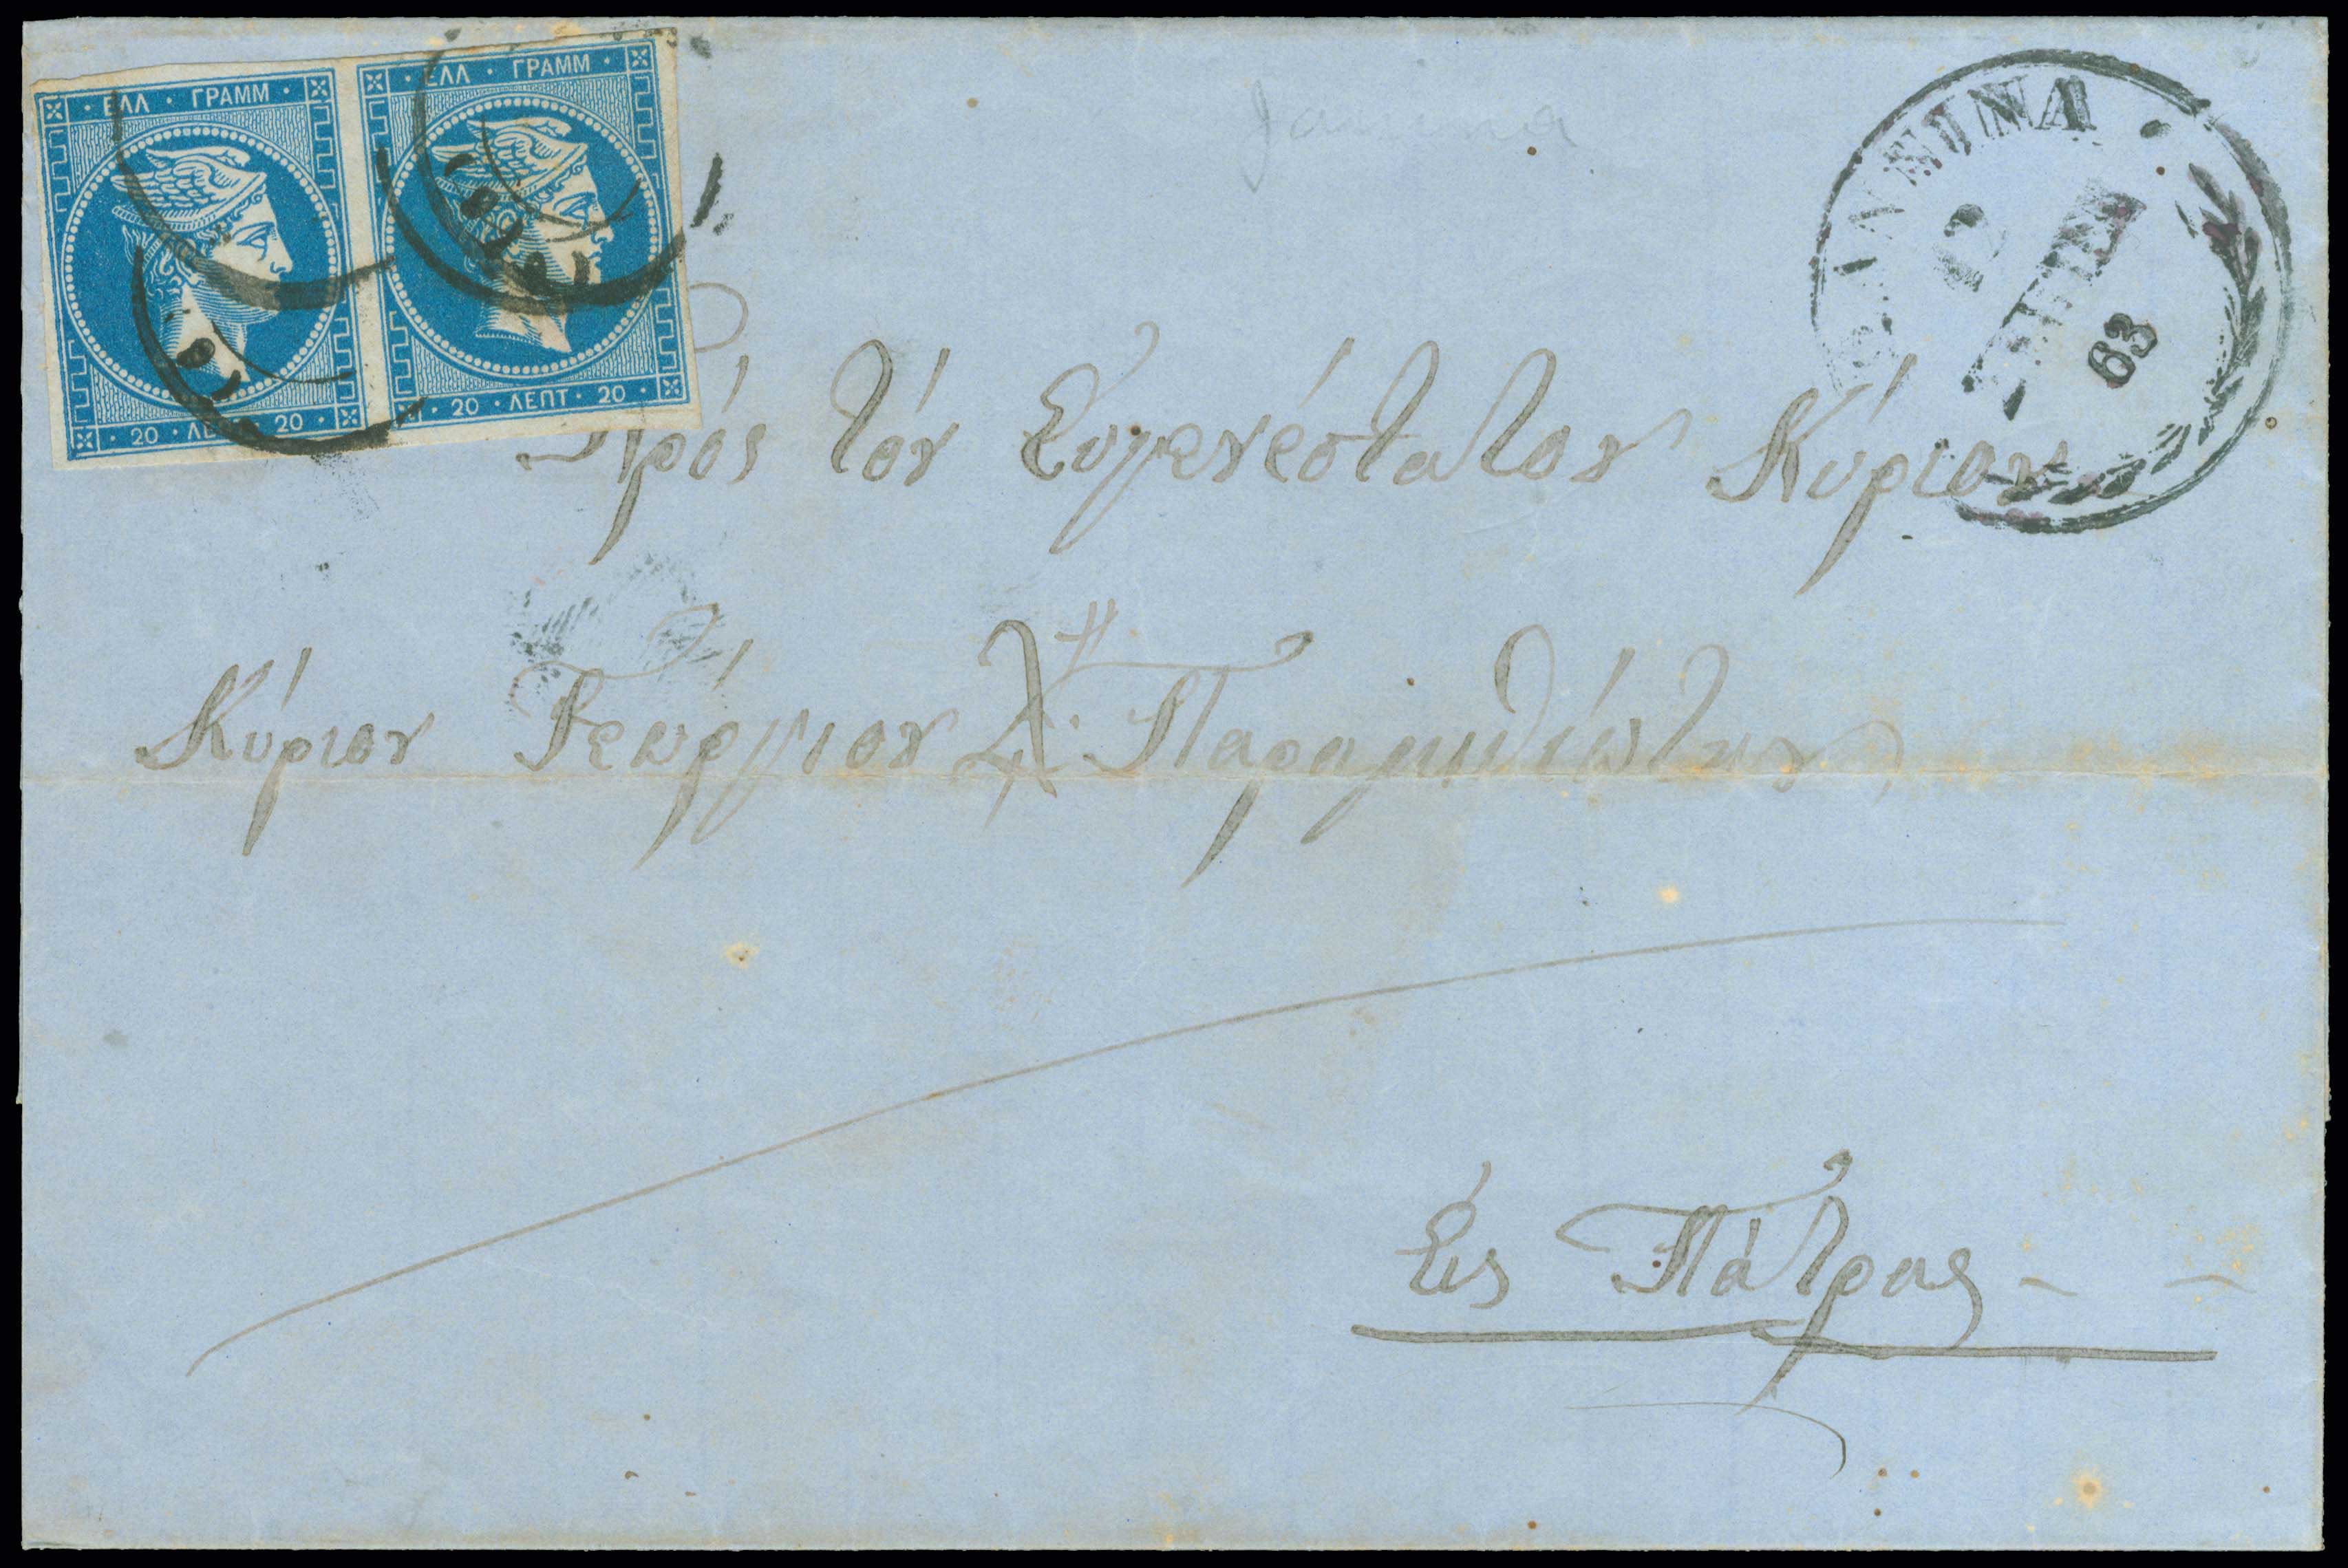 · ΕΛΛ · ΓΡΑΜΜ ·
· 20 · ΛΕΠΤ · 20 ·
· ΕΛΛ · ΓΡΑΜΜ ·
· 20 · ΛΕΠΤ · 20 ·
Janina
63
Πρός τόν Εὐγενέστατον Κύριον
Κύριον Γεώργιον Χ" Παραμυθιώτην
Εἰς Πάτρας